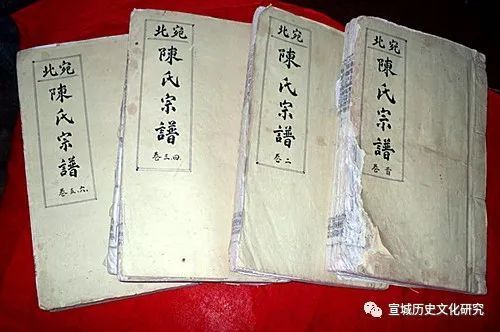 宛北
陳氏宗譜
卷首
宛北
陳氏宗譜
卷二
宛北
陳氏宗譜
卷三.四.
宛北
陳氏宗譜
卷五.六.
宣城历史文化研究